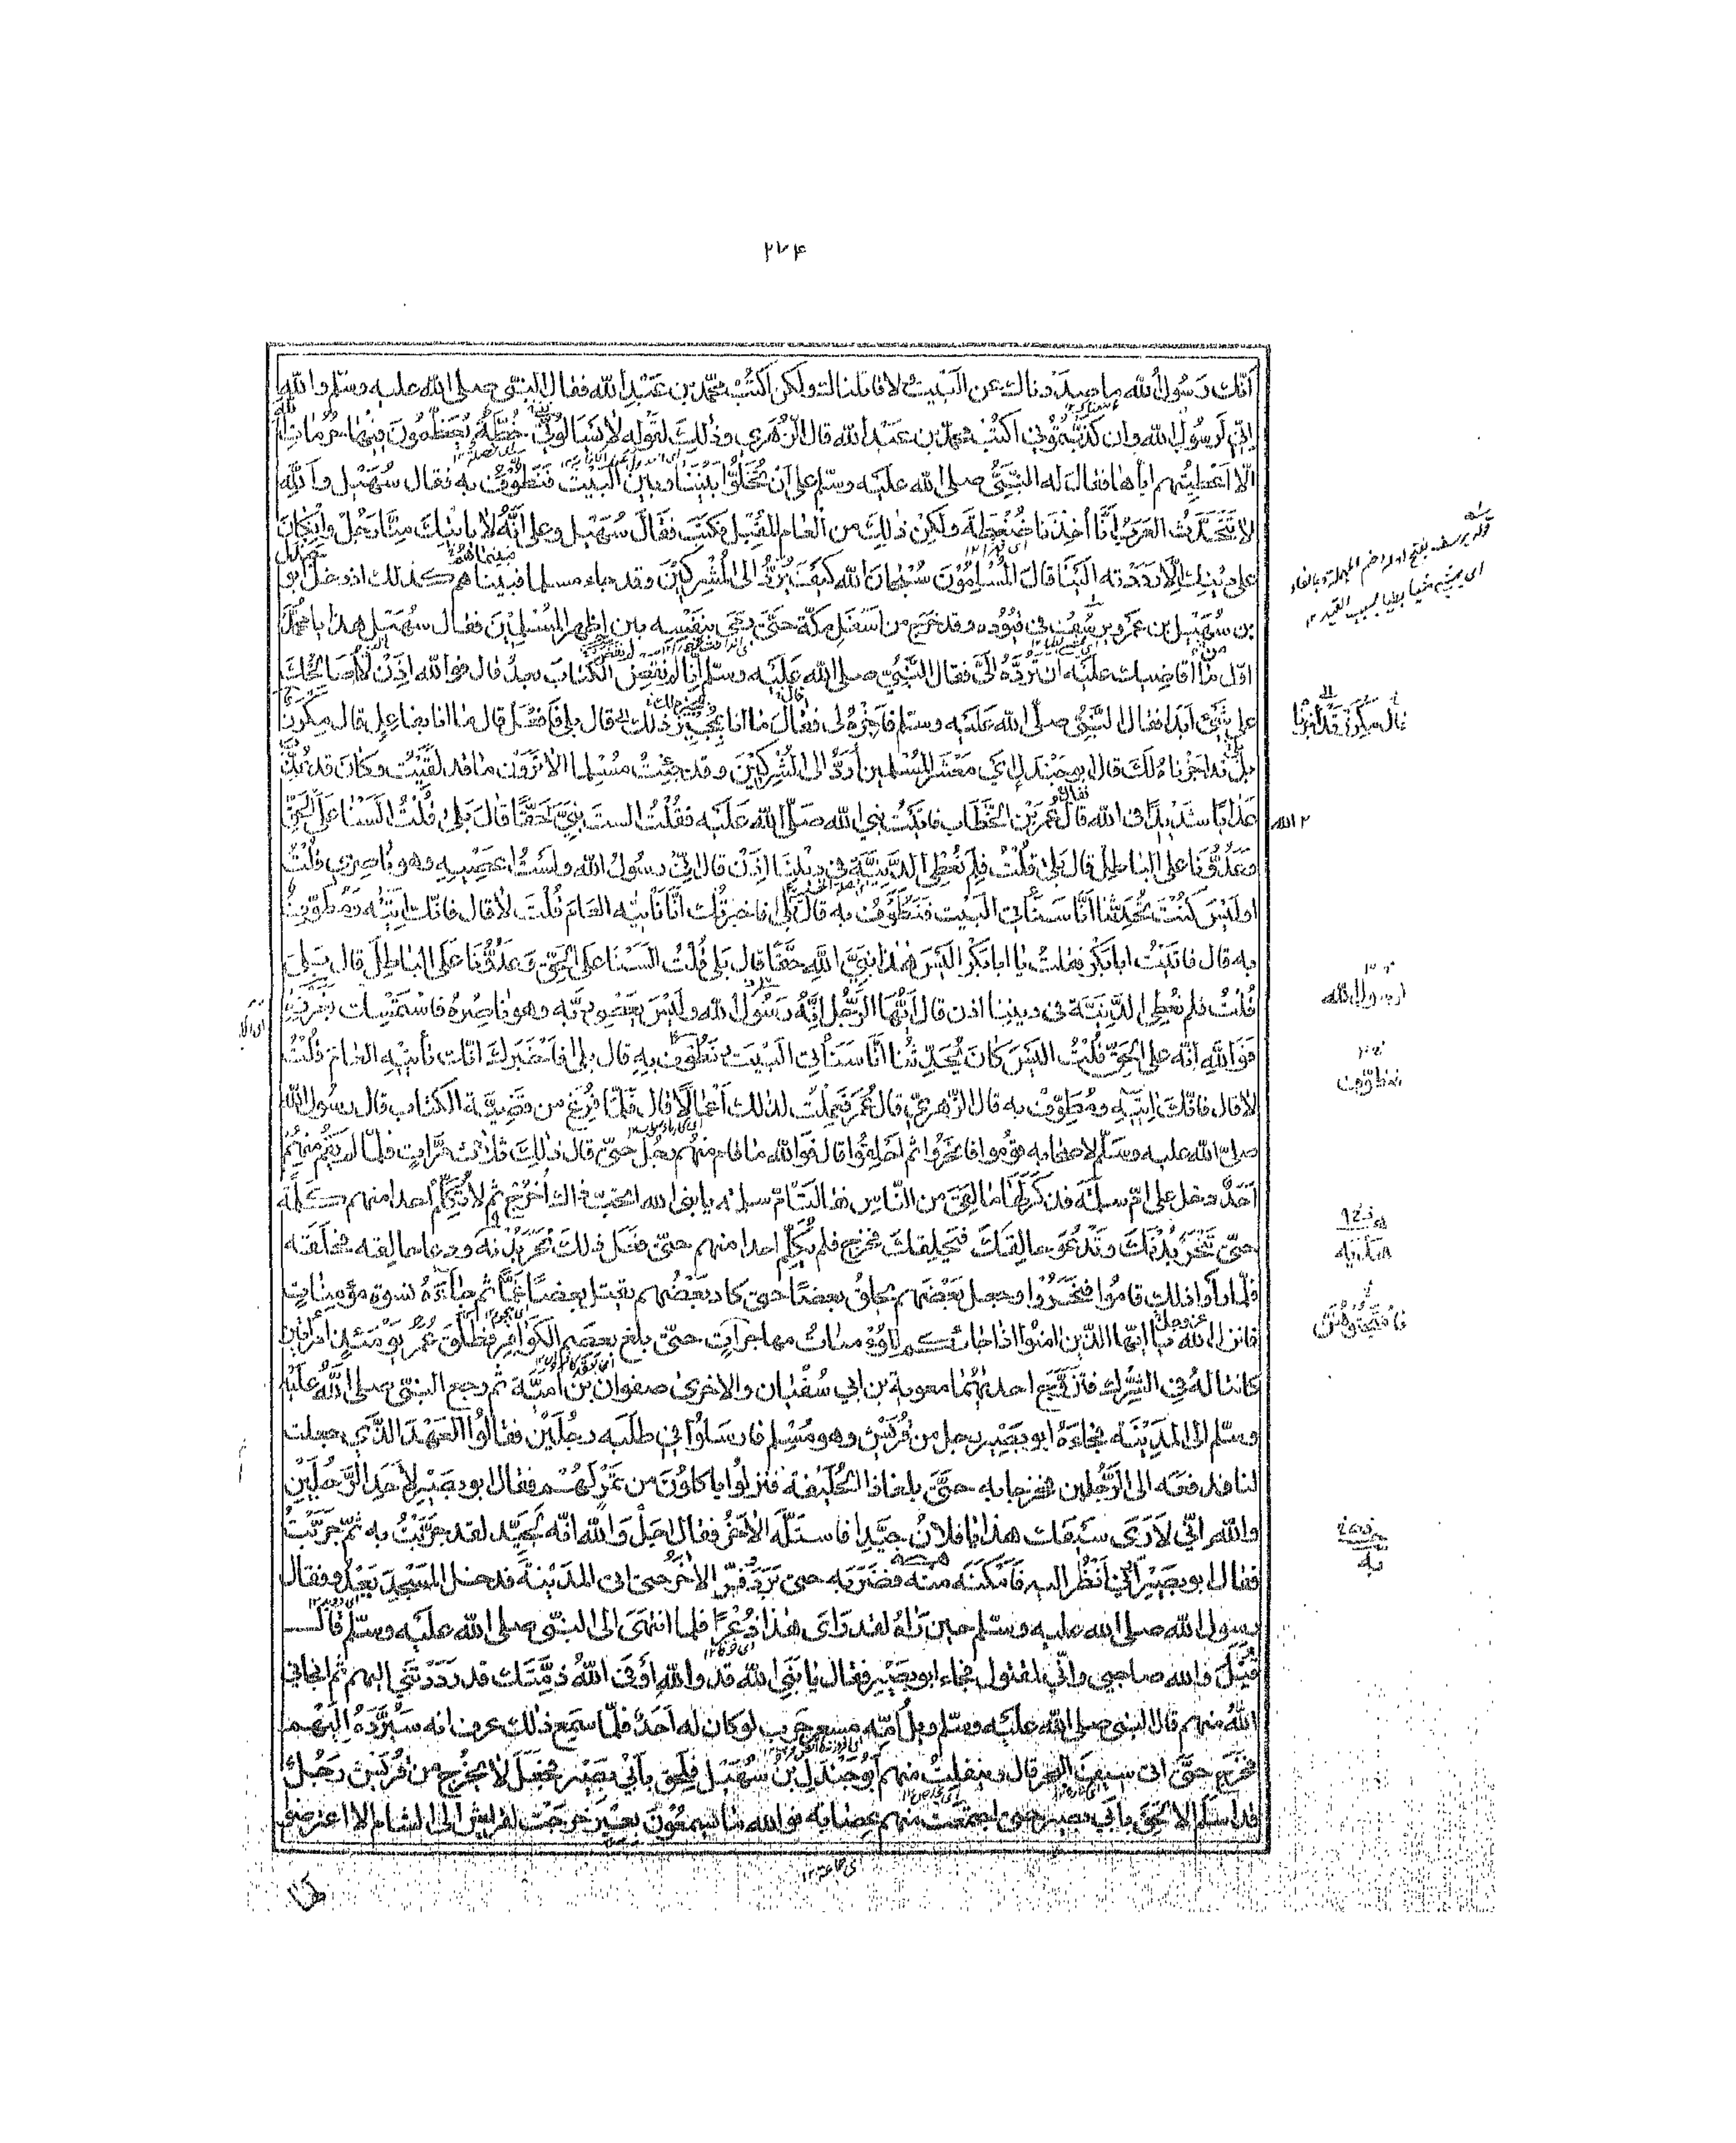 ۲۷۴
أنّك رسولُ الله ما صددناك عن البيت ولا قاتلناك ولكن اكتُبْ محمّد بن عَبْدِ الله فقال النبيّ صلى الله عليه وسلّم والله
اِنّي لَرسُولُ الله وان كذّبتمُوني اكتُبْ محمّد بن عبد الله قال الزُّهري وذلك لقوله لا يَسألوني خُطّةً يُعظّمُونَ فيها حُرُماتِ الله
اِلّا اَعْطيتُهم ايّاها فقال له النّبيّ صلى الله عليه وسلم على ان تُخَلُّوا بيننا وبين البَيْت فنطوّف به فقال سُهَيْل والله
لا تَتَحَدّثُ العَرَبُ اَنّا اُخِذْنا ضُغْطَةً ولكِنْ ذلك من العام المُقْبِل فكتَبَ فقال سُهَيْل وعلى اَنّهُ لا ياتيك مِنّا رَجُلٌ وان كانَ
على دينك اِلّا رَدَدْته الَيْنا قال المُسْلِمُوْن سُبْحانَ الله كيفَ يُرَدُّ الى المُشرِكيْنَ وقد جاء مسلما فبينا هم كذلك اذ دخل ابو
بن سُهَيْل بن عَمْرو يرسُف في قيُوده وقد خرج من اَسْفل مكّة حتّى رمى بنفْسِه بين اظهر المُسْلِمينَ فقال سُهَيْل هذا يا محمّد
اوّل ما اُقاضيك عليه ان تَرُدّهُ اِلَيّ فقال النّبيّ صلى الله عليه وسلّم اِنّا لم نقضِ الكتاب بعدُ قال فوالله اِذَنْ لا اُصالِحُك
على شَيْءٍ ابَدا فقال النّبيّ صلّى الله عليه وسلّم فاَجِزْهُ لي فقال ما انا بمُجيز ذلك قال بلى فافعَلْ قال ما انا بفاعِلٍ قال مِكْرَزٌ
بلْ قد اجَزْناهُ لك قال ابو جَنْدل اي مَعْشَر المُسْلمين اُرَدُّ الى المُشْركيْنَ وقد جِئتُ مُسْلما الا تَرَوْن ما قد لَقيتُ وكان قد عُذّبَ
عَذابًا شديدًا في الله قال عُمَرُ بن الخطّاب فاتيتُ نبيّ الله صلّى الله عليه فقُلْتُ الستَ نبيَّ حَقًّا قال بَلى قُلْتُ اَلَسْنا على الحَقِّ
وعَدُوُّنا على الباطِل قال بَلى قُلْتُ فلِمَ نُعْطي الدّنيّةَ في ديننا اِذَنْ قال اِنّي رسُولُ الله ولسْتُ اعصيه وهو ناصِري قُلْتُ
اوليسَ كنْتَ تُحَدّثُنا اَنّا سنأتي البَيْت فنطوّف به قال بلى فاخبرتُك اَنّا نأتيه العام قُلْتُ لا قال فانّك اٰتيْه ومُطوّفٌ
به قال فاتيْتُ ابا بَكْر فقلتُ يا ابا بَكْر اليْسَ هذا نبيَّ الله حقًّا قال بلى قُلْتُ السْنا على الحقّ وعدُوُّنا على الباطل قال بَلى
قُلْتُ فلِم نُعْطي الدّنيَّة في ديننا اذن قال ايّها الرّجُل اِنّهُ رسُولُ الله وليْسَ يعصي ربّه وهو ناصِرُهُ فاسْتَمْسِك بغَرْزِه
فوالله انّه على الحقّ قُلْتُ اليْسَ كانَ يُحَدّثُنا اَنّا سنأتي البَيْت ونطُوف به قال بلى افاَخْبَرك انّك تأتيه العام قُلْتُ
لا قال فانّك اٰتيه ومُطوّفٌ به قال الزّهريّ قال عُمَرُ فعمِلْتُ لذلك اَعْمالًا قال فلمّا فرغ من قضيّة الكتاب قال رسُول الله
صلى الله عليه وسلّم لاصحابه قومُوا فانحَرُوا ثم احْلِقُوا قال فوالله ما قام منهم رجُل حتّى قال ذلك ثلاث مرّاتٍ فلمّا لم يقُم منهُم
اَحَدٌ دخل على امّ سلَمة فذكرَ لها ما لقيَ من النّاس فقالت امّ سلمة يا نبيّ الله اتحبّ ذلك اخْرُج ثم لا تُكلّم احدا منهم كلمة
حتّى تَنْحَرَ بُدْنَك وتَدْعُوَ حالِقَك فيَحْلِقك فخرج فلم يُكلّم احدا منهم حتّى فعل ذلك نحَرَ بُدْنَهُ ودعا حالقه فحَلَقه
فلمّا رأوا ذلك قاموا فنَحَرُوا وجعل بعْضُهم يحْلقُ بعضًا حتى كاد بعْضُهم يقتل بعضًا غمًّا ثم جاءَهُ نسوة مؤمنات
فانزل الله عزوجل يا ايّها الذين امنُوا اذا جاءكم المؤمنات مهاجراتٍ حتّى بلغ بعِصَم الكوافر فطلّق عُمَرُ يومئذٍ امراتَين
كانتا لهُ في الشّرك فتزوّج احدٰهما معوية بن ابي سُفيان والاخرى صفوان بن اُميّة ثم رجع النبيّ صلى الله عليه
وسلّم الى المديْنَة فجاءَهُ ابو بصير رجل من قُرَيْش وهو مُسْلم فارسلُوا في طلَبه رجُلَيْن فقالُوا العَهْدَ الّذي جعلت
لنا فدفعَه الى الرَّجُلين فخرجا به حتَّى بلغا ذا الحُلَيْفة فنزلُوا ياكلُوْنَ من تَمْر لهُمْ فقال ابو بصير لاَحَدِ الرّجُلَيْن
والله اِنّي لاَرَى سَيْفك هذا يا فلانُ جيّدا فاستلّه الاٰخرُ فقال اجَلْ والله انّه لجيّد لقد جرّبْتُ به ثمّ جرّبْتُ
فقال ابو بصير اَرِني اَنْظُر اليه فاَمْكَنَه منه فضَرَبه حتى بَرَد وفرّ الاٰخرُ حتى اتى المديْنة فدخل المسْجِد يَعْدُو فقال
رسول الله صلى الله عليه وسلّم حين رَاٰهُ لقد رَاَى هٰذا ذُعْرًا فلما انتهى الى النبيّ صلى الله عليه وسلّم قال
قُتِلَ والله صاحبي واِنّي لمقتول فجاء ابو بصير فقال يا نبيَّ الله قد والله اَوْفى اللهُ ذمّتك قد رَدَدْتَني اليهم ثم انجاني
اللهُ منهم قال النبي صلى الله عليه وسلم ويلُ اُمّه مِسْعر حَرْب لو كان له اَحَدٌ فلمّا سمِع ذلك عرف انه سيَرُدّهُ اِليْهم
فخرج حتَّى اتى سِيفَ البحر قال وينفلتُ منهم ابُو جَنْدل بن سُهَيْل فلَحِق بابي بصير فجعَلَ لا يخرُج من قُرَيْش رجُلٌ
قد اسلم الا لحِقَ بابي بصير حتى اجتمعت منهم عِصَابة فوالله ما يسمعُوْنَ بعيْر خرجت لقريش الى الشام الا اعترضوا
قال مِكْرَزٌ قد اجزنا
۲ الله
لرسول الله
فامتحنوهن
لها